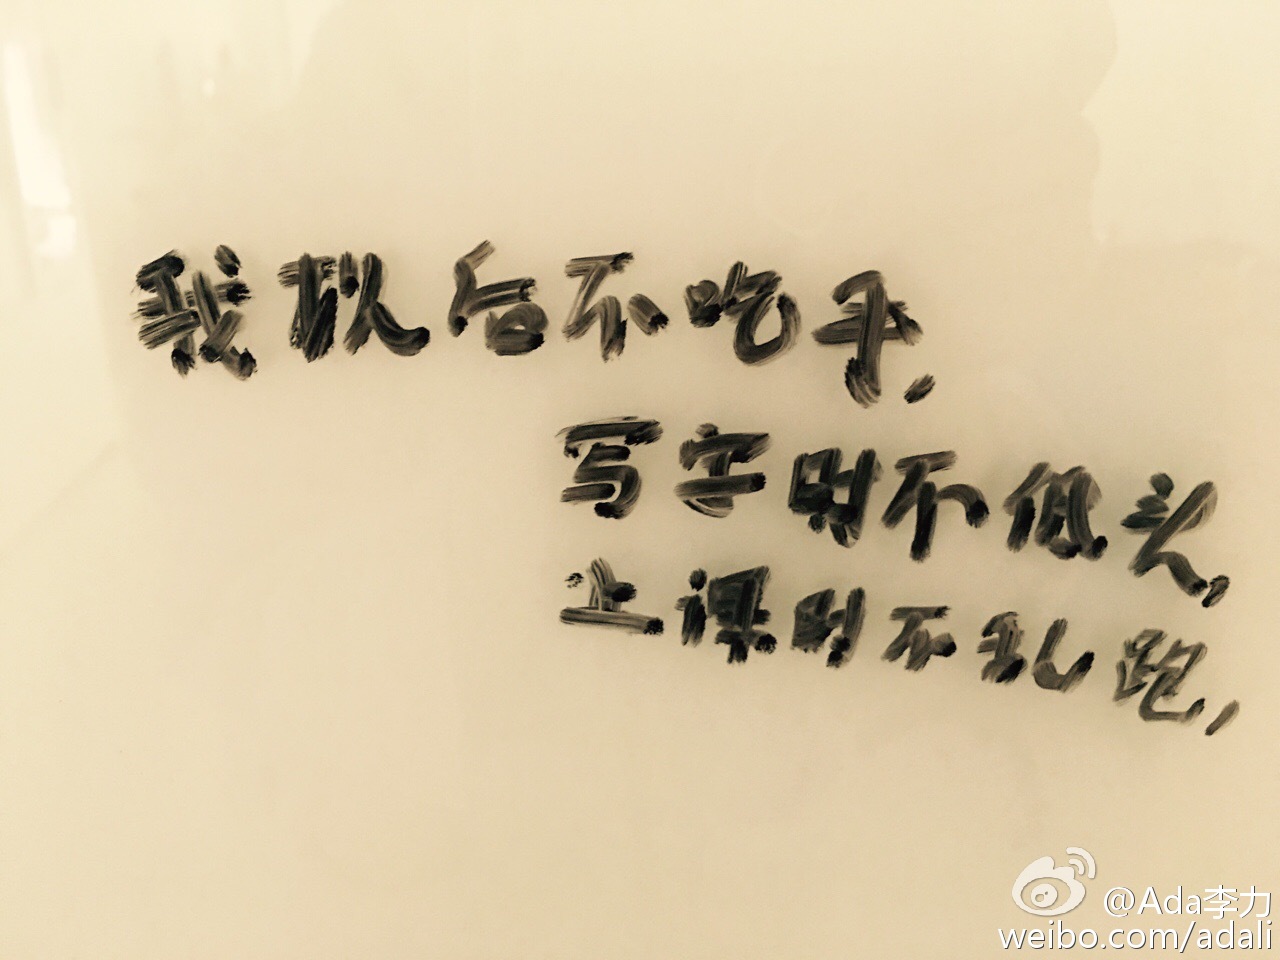 我以后不吃手,
写字时不低头,
上课时不乱跑,
@Ada李力
weibo.com/adali